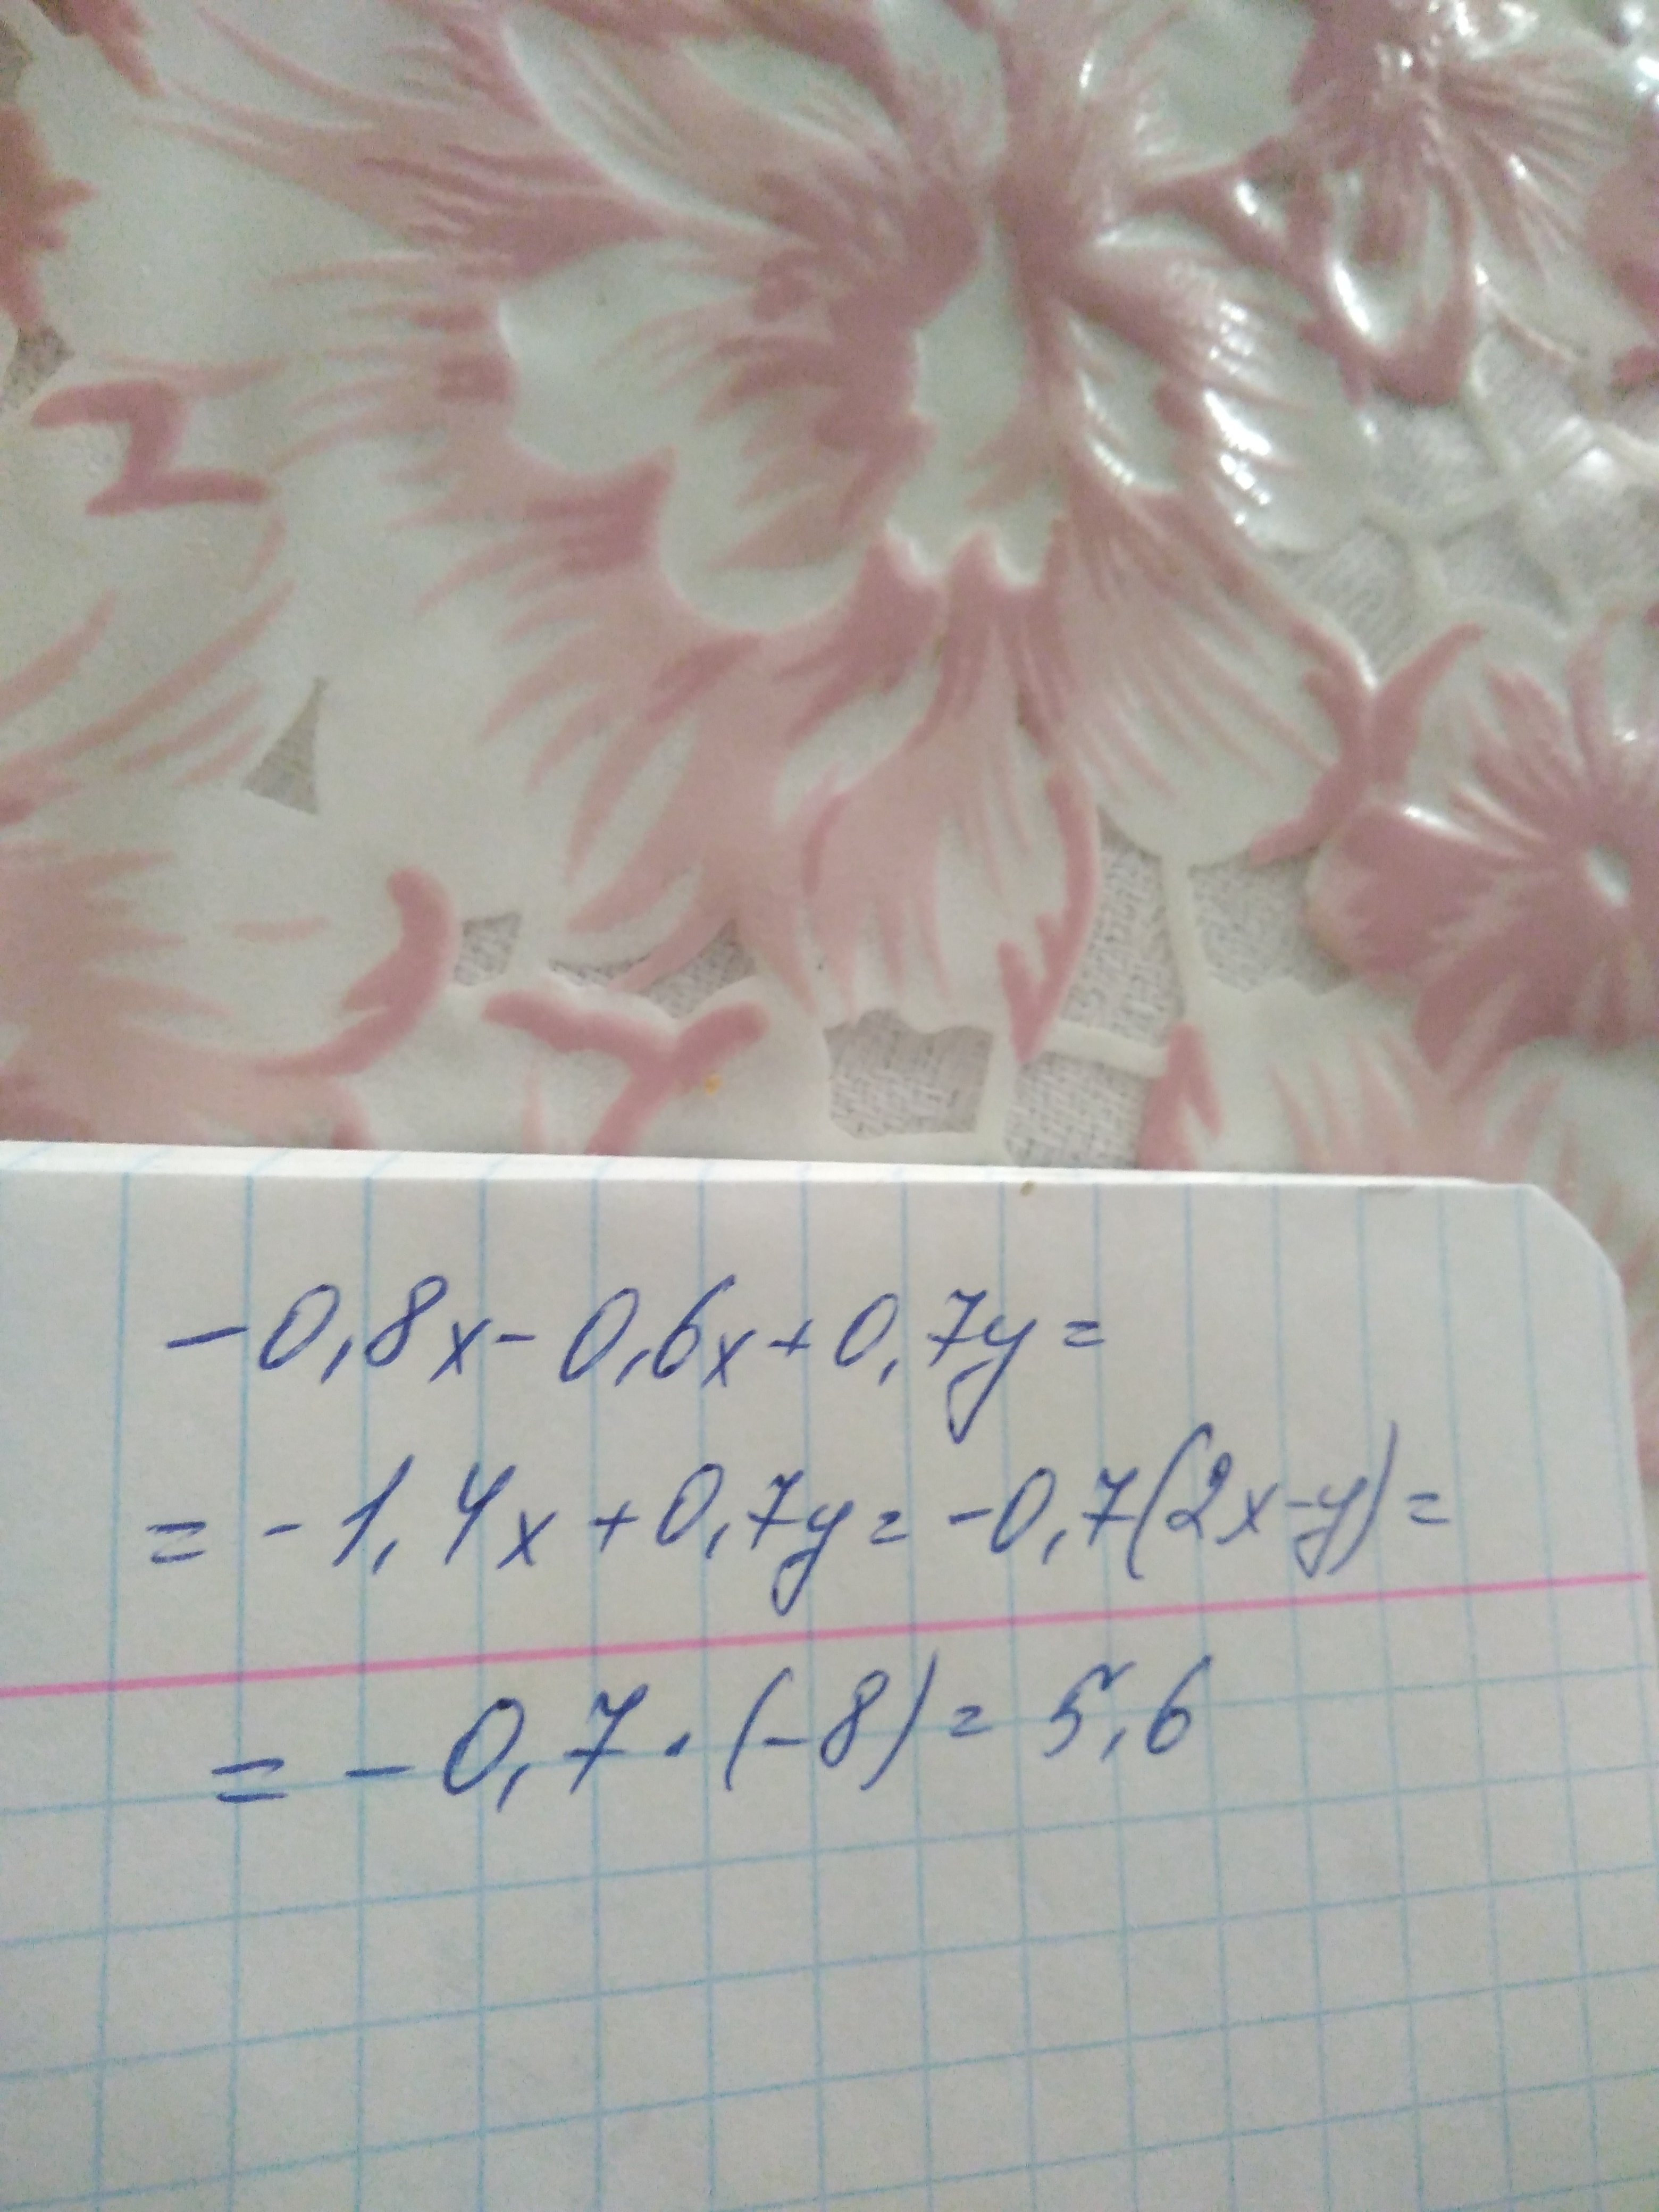 -0,8x-0,6x+0,7y=
=-1,4x+0,7y=-0,7(2x-y)=
=-0,7·(-8)=5,6